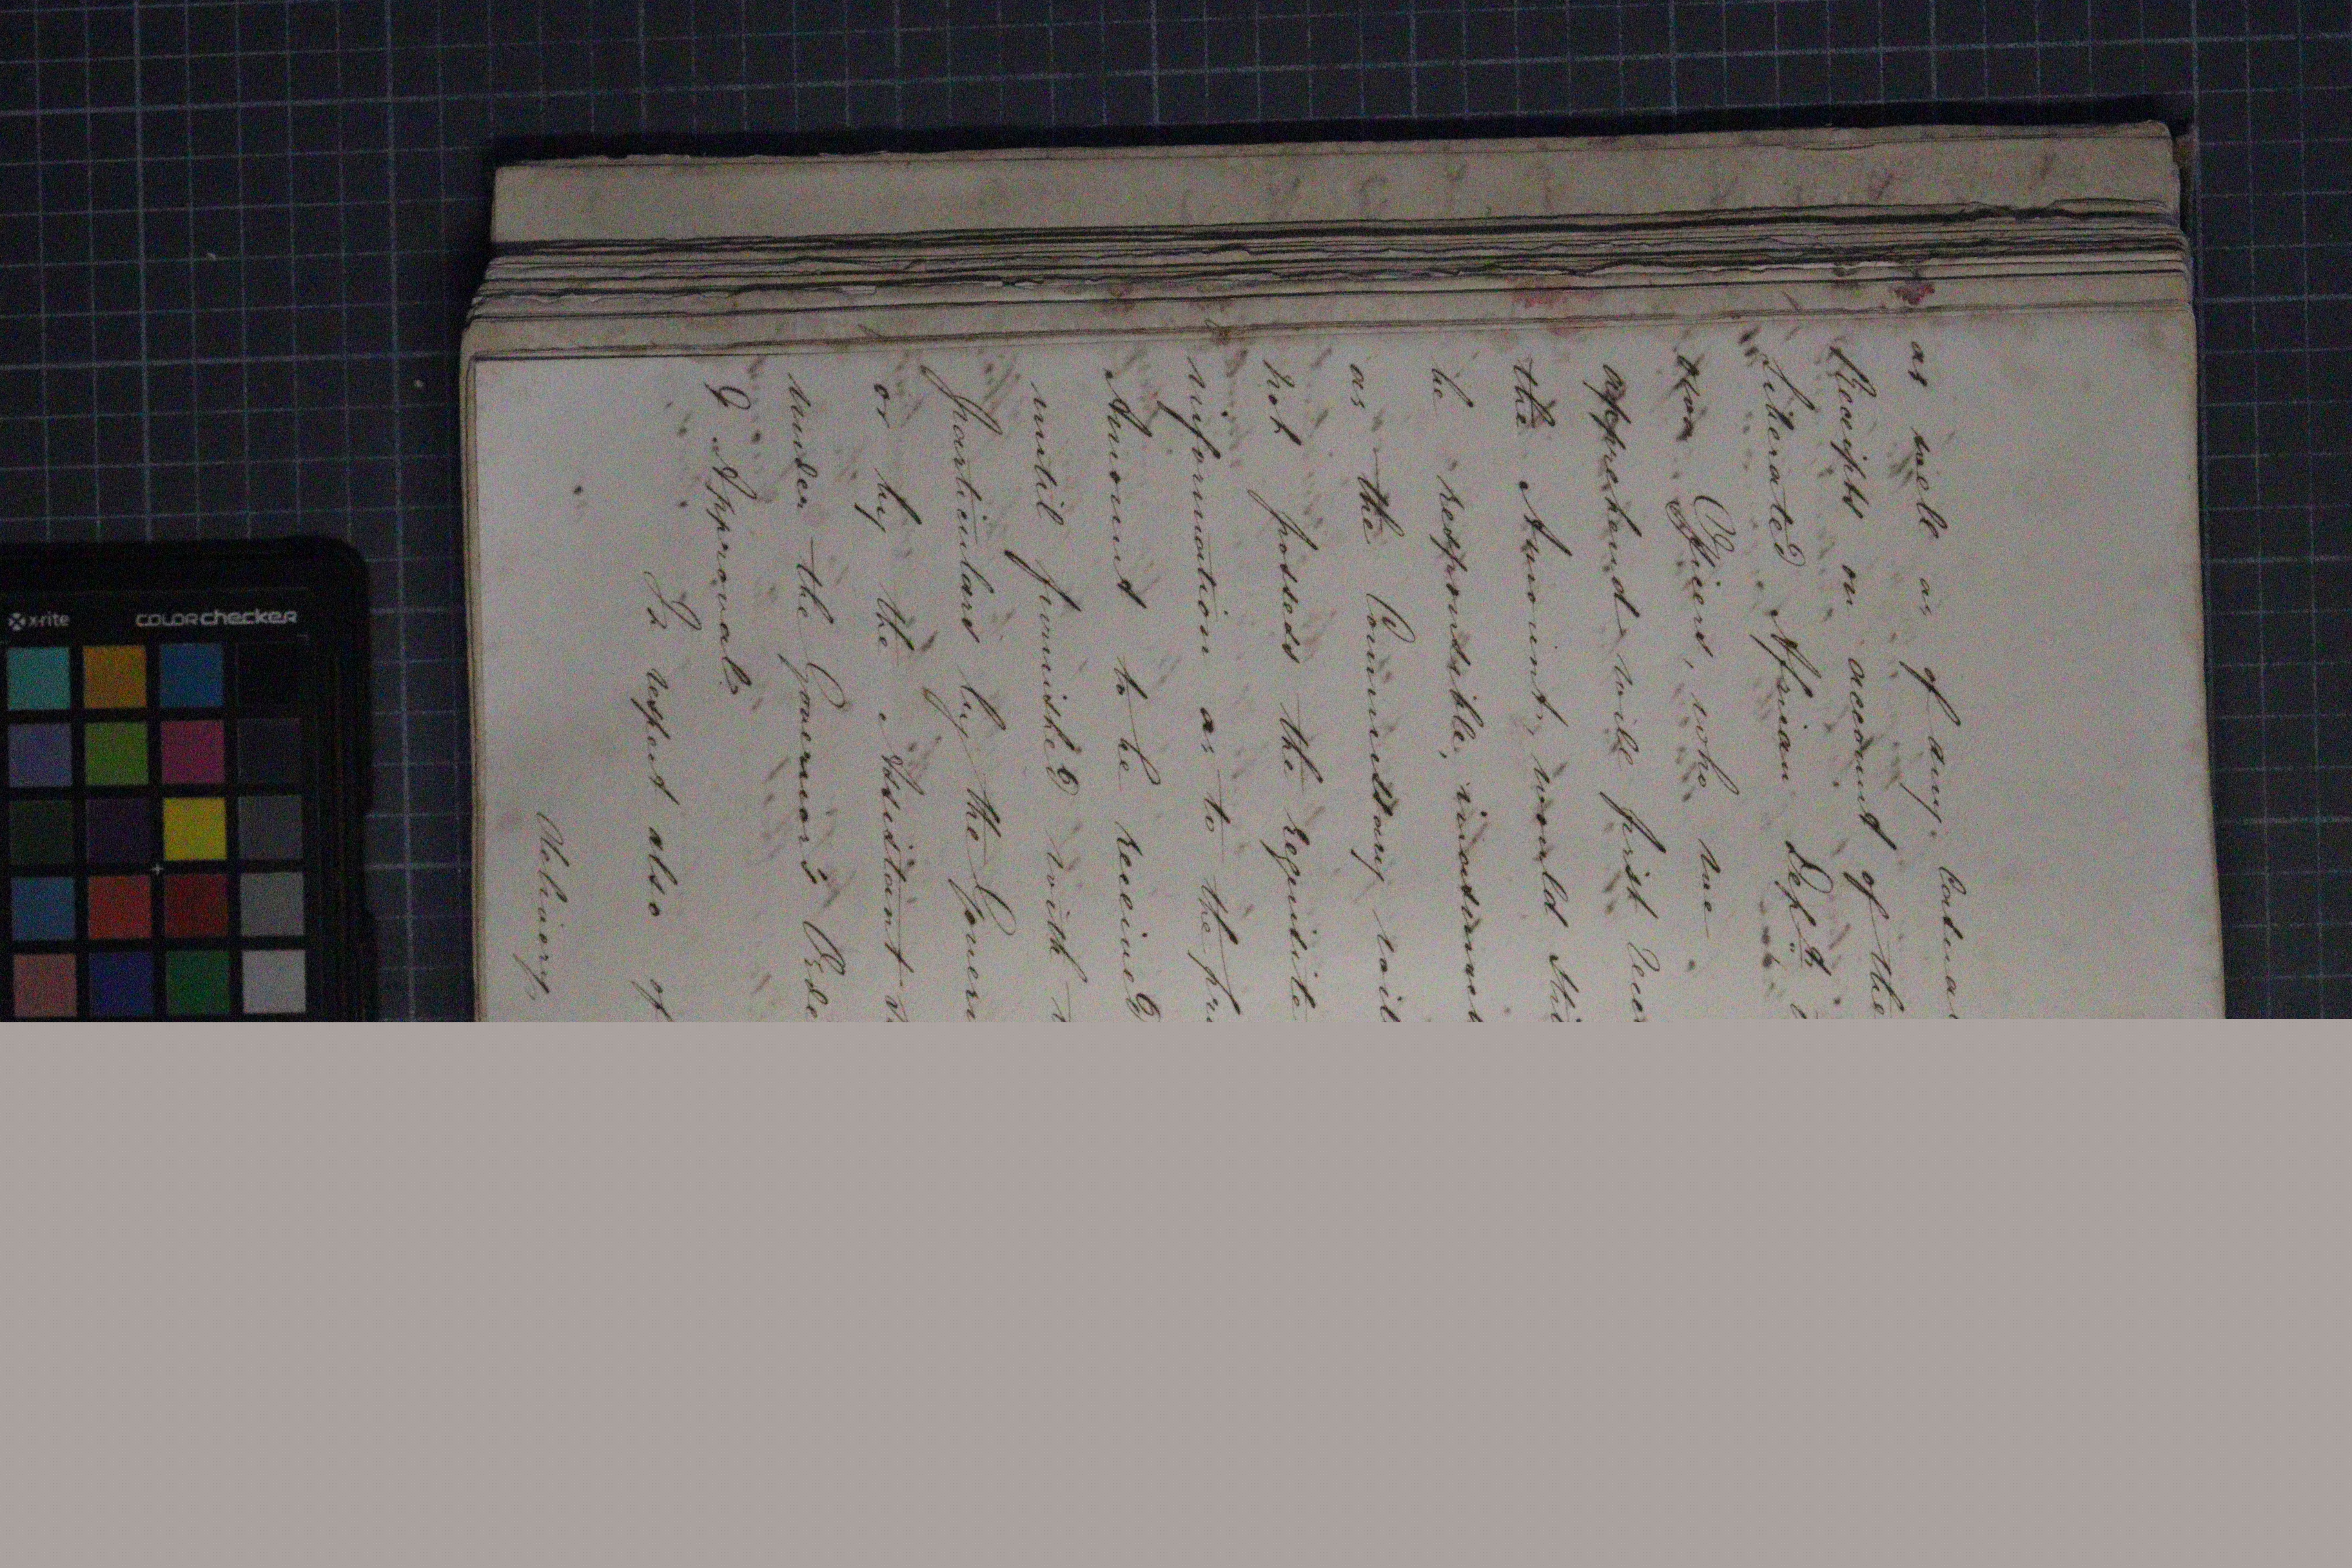 as well as of any Casual
Receipts on account of the
Liberated African Dept
Officers, who we
apprehend will first
the Amount, would
be responsible,
as the Commissary will
not possess the requisite
information as to the
Amount to be received
until furnished with
Particulars by the
or by the Assistant
under the Governor's
& Approval.
In respect also of
Deliveries
x-rite COLORchecker